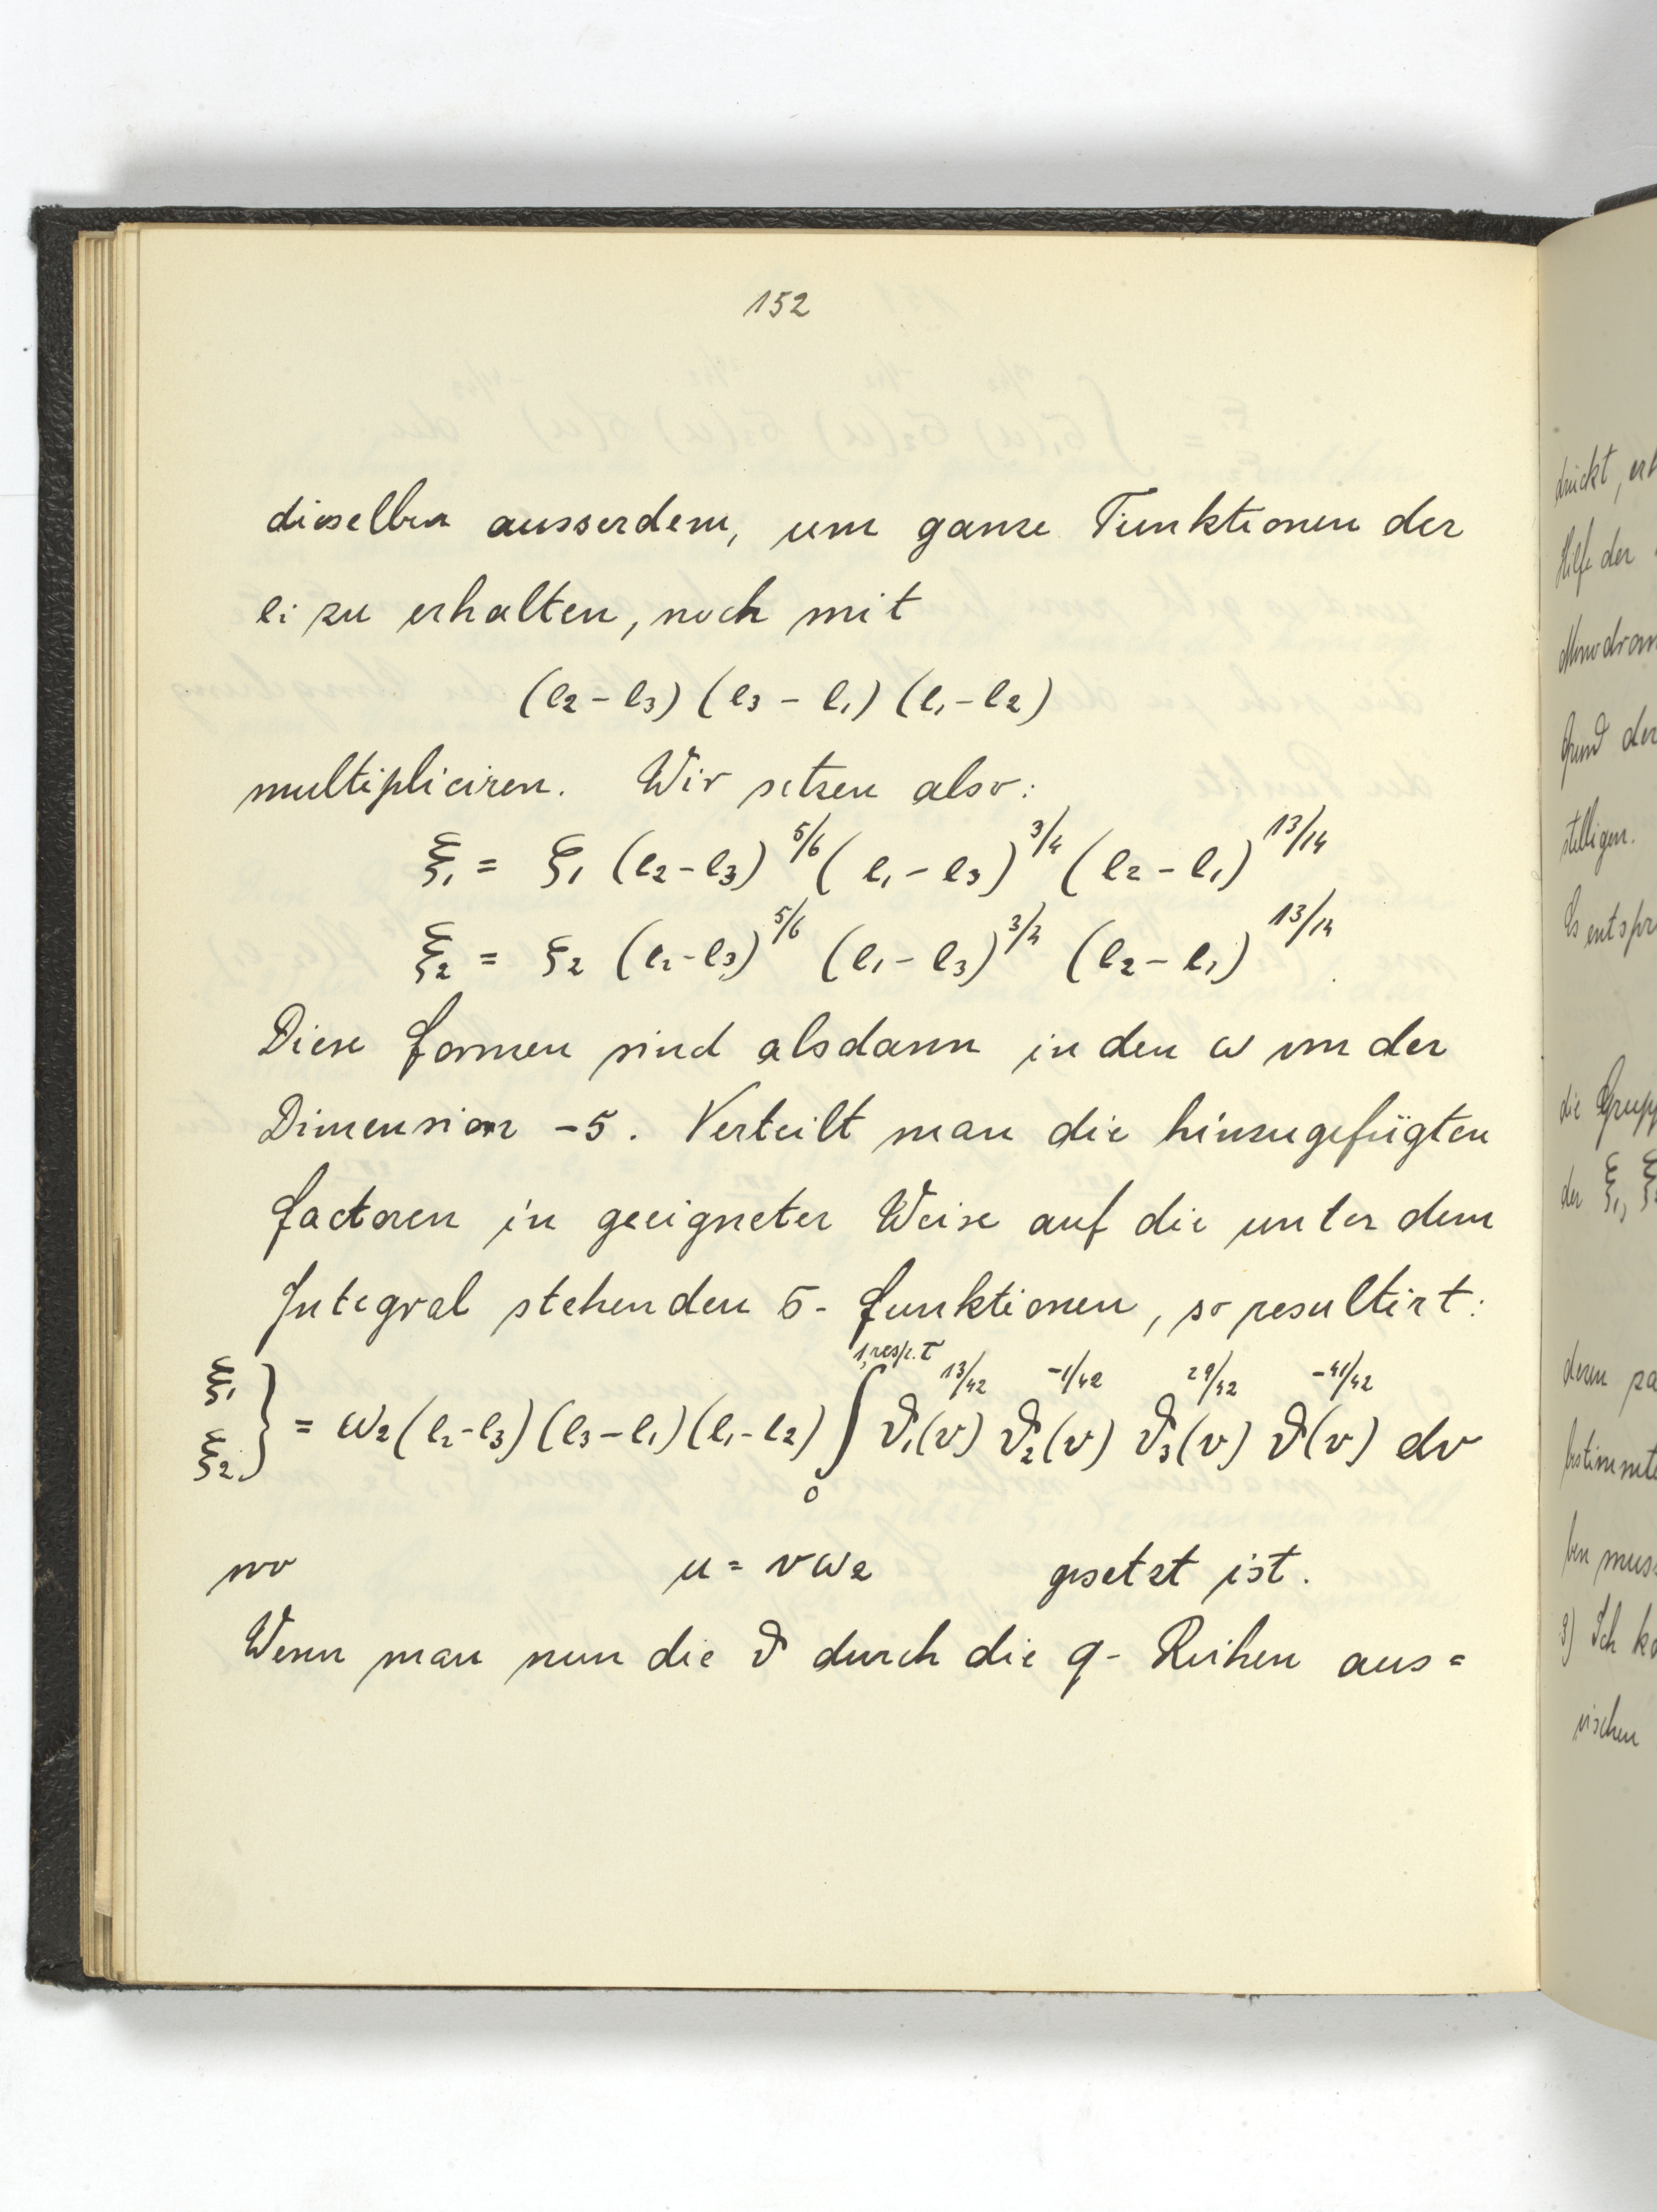 152
dieselben ausserdem, um ganze Funktionen der
ei zu erhalten, noch mit
(e₂ – e₃) (e₃ – e₁) (e₁ – e₂)
multipliciren. Wir setzen also:
Ξ₁ = ξ₁ (e₂ – e₃)^5/6 (e₁ – e₃)^3/4 (e₂ – e₁)^13/14
Ξ₂ = ξ₂ (e₂ – e₃)^5/6 (e₁ – e₃)^3/4 (e₂ – e₁)^13/14
Diese Formen sind alsdann in den ω von der
Dimension –5. Verteilt man die hinzugefügten
Factoren in geeigneter Weise auf die unter dem
Integral stehenden σ-Funktionen, so resultirt:
Ξ₁ Ξ₂ } = ω₂ (e₂ – e₃) (e₃ – e₁) (e₁ – e₂) ∫₀^1, resp. τ ϑ₁(v)^13/42 ϑ₂(v)^-1/42 ϑ₃(v)^29/42 ϑ(v)^-41/42 dv
wo u = vω₂ gesetzt ist.
Wenn man nun die ϑ durch die q-Reihen aus=
drückt,
Hilfe der
Grund der
stelligen.
Es entspr
die Grupp
der Ξ₁,
deren
bestimmte
ben muss
3) Ich
rischen